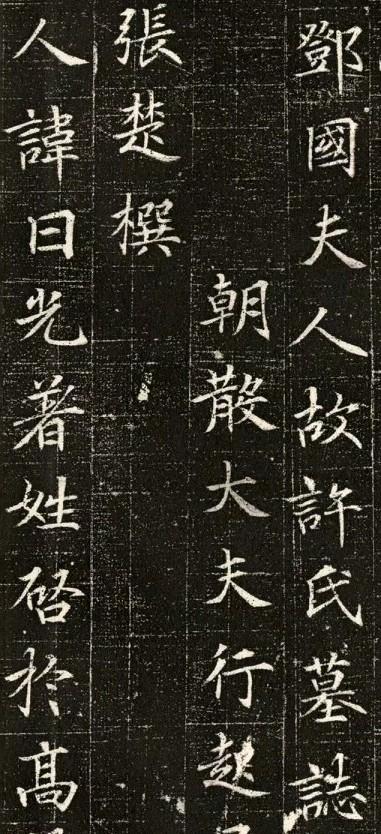 鄧國夫人故許氏墓誌
朝散大夫行起
張楚撰
人諱日光著姓啓於高